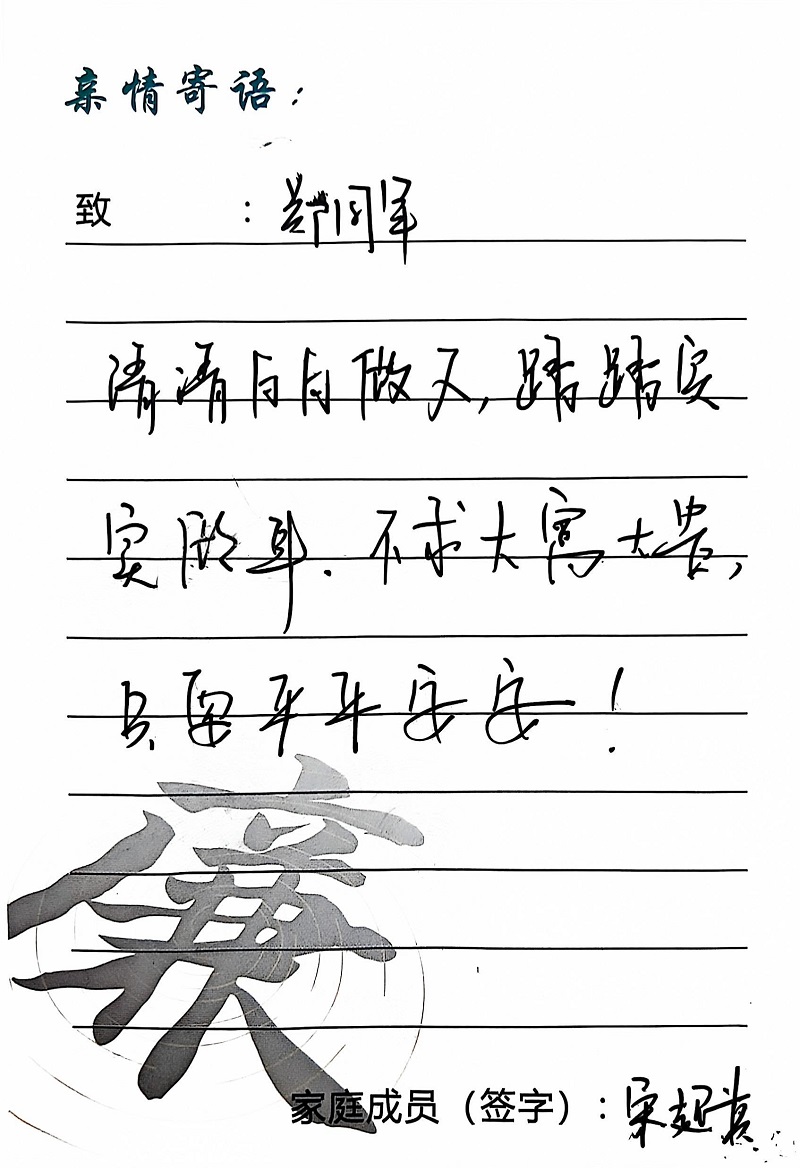 亲情寄语：
致　　　：郑同军
清清白白做人，踏踏实
实做事．不求大富大贵，
只要平平安安！
廉
家庭成员（签字）：宋